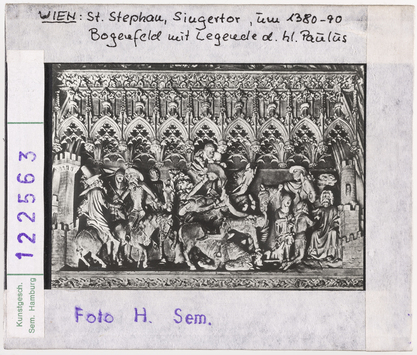 WIEN: St. Stephan, Singertor, um 1380-90
Bogenfeld mit Legende d. hl. Paulus
122563
Kunstgesch.
Sem. Hamburg
Foto H. Sem.